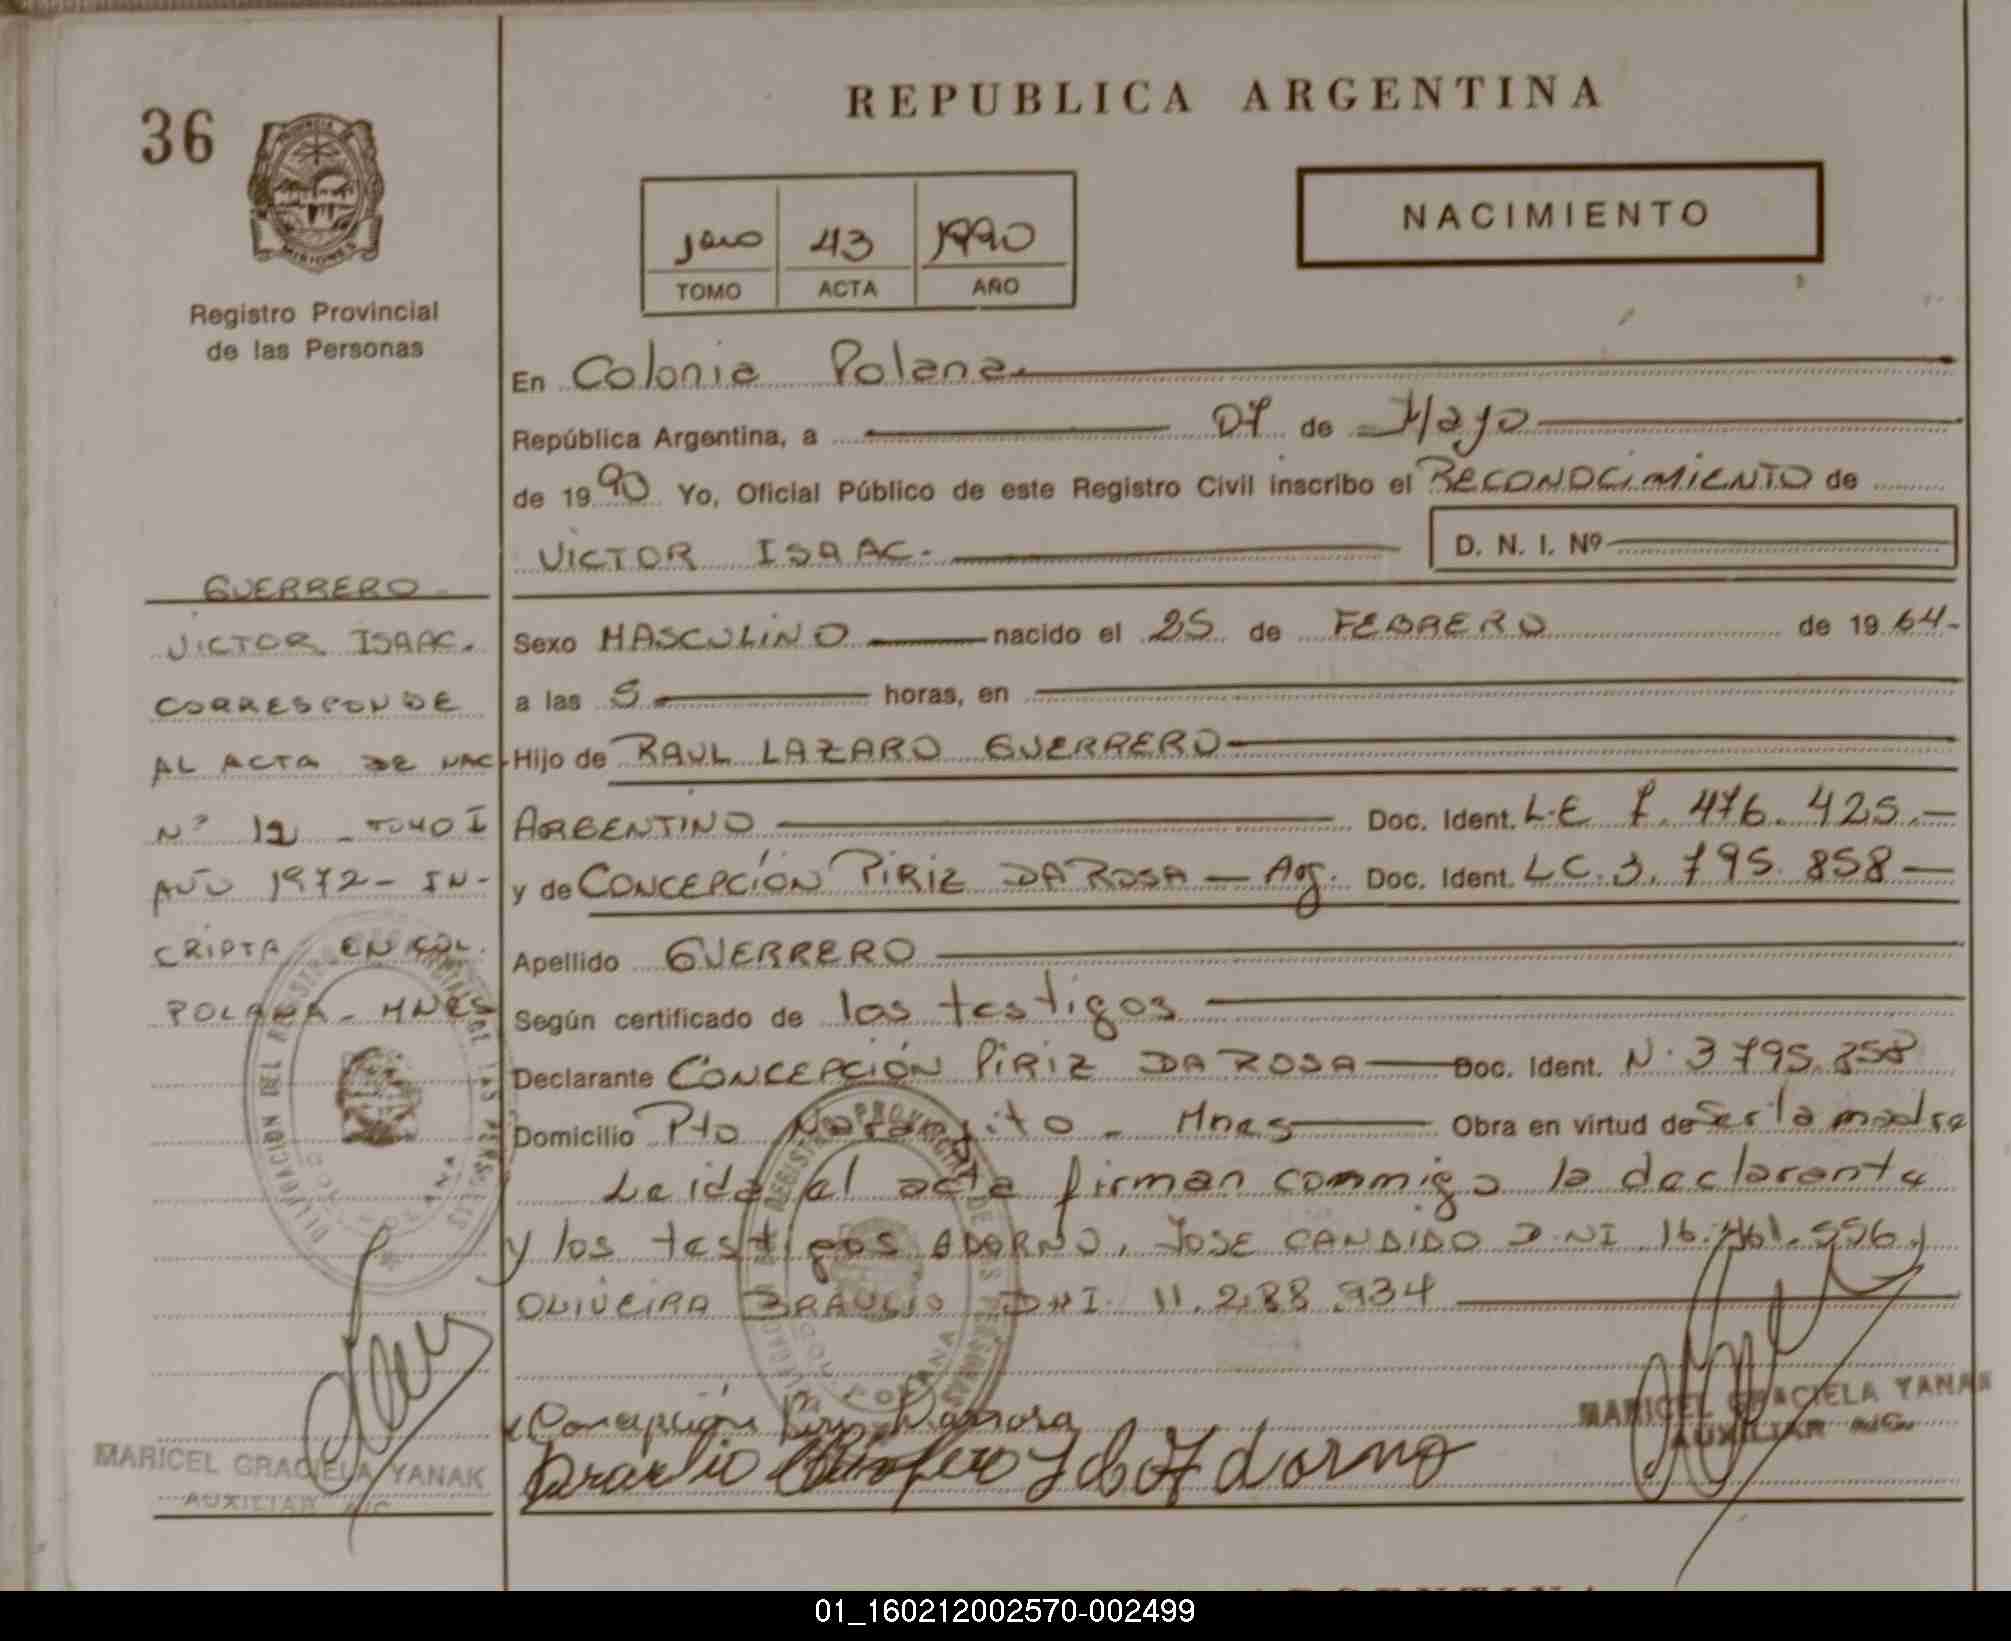 REPUBLICA ARGENTINA
36
NACIMIENTO
43 1990
TOMO ACTA AÑO
Registro Provincial
de las Personas
En Colonia Polana
República Argentina, a 07 de Mayo
de 1990 Yo, Oficial Público de este Registro Civil inscribo el RECONOCIMIENTO de
VICTOR ISAAC.
D. N. I. Nº
GUERRERO
VICTOR ISAAC.
CORRESPONDE
AL ACTA DE NAC
Nº 12 - TOMO I
AÑO 1972 - IN-
CRIPTA EN COL.
POLANA - MNES
Sexo MASCULINO nacido el 25 de FEBRERO de 1964-
a las 5 horas, en
Hijo de RAUL LAZARO GUERRERO
ARGENTINO Doc. Ident. L.E 7.476.425.-
y de CONCEPCIÓN PIRIZ DA ROSA - Arg. Doc. Ident. LC. 3.795.858-
Apellido GUERRERO
Según certificado de los testigos
Declarante CONCEPCIÓN PIRIZ DA ROSA Doc. Ident. N. 3795.858
Domicilio Pto Naranjito - Mnes Obra en virtud de ser la madre
Leida el acta firman conmigo la declarante
y los testigos ADORNO, JOSE CANDIDO D.NI 16.461.556 y
OLIVEIRA BRAULIO DNI 11.288.934
Concepción Piriz Darrosa
MARICEL GRACIELA YANAK
AUXILIAR
Braulio Adorno
MARICEL GRACIELA YANAK
AUXILIAR
01_160212002570-002499